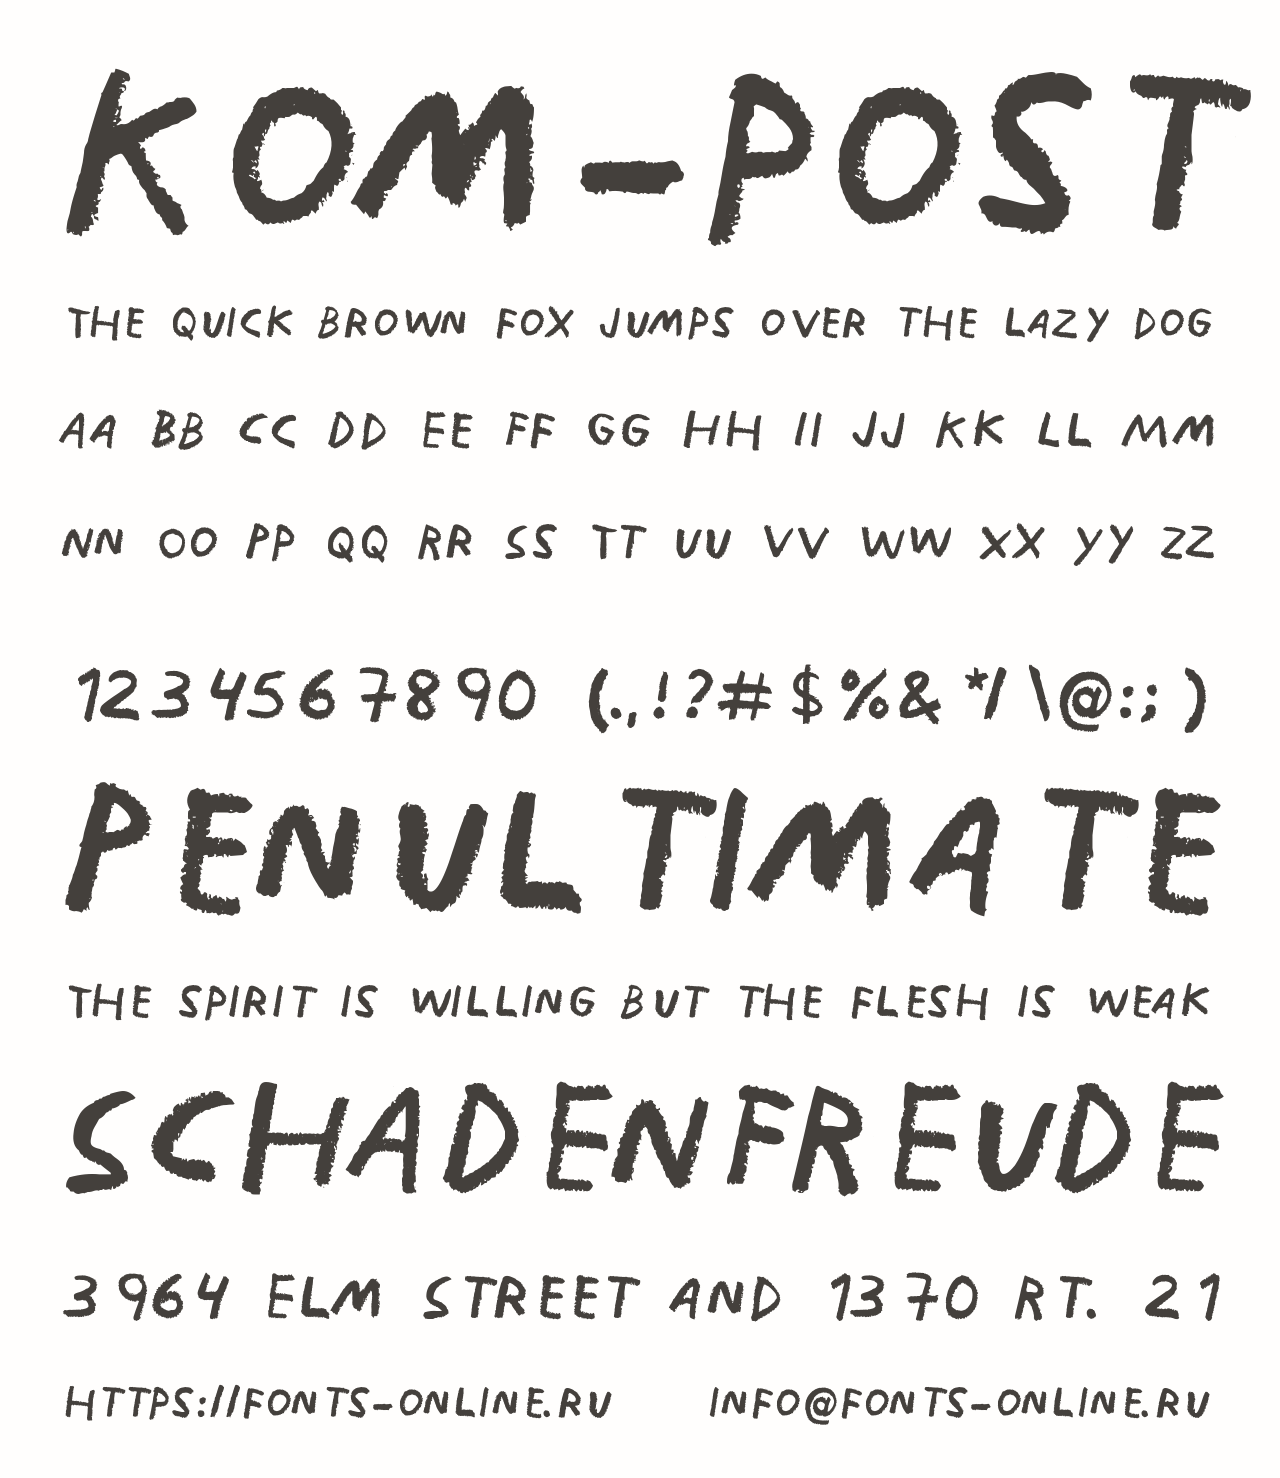 KOM-POST
THE QUICK BROWN FOX JUMPS OVER THE LAZY DOG
AA BB CC DD EE FF GG HH II JJ KK LL MM
NN OO PP QQ RR SS TT UU VV WW XX YY ZZ
1234567890 (.,!?#$%&*/\@:;)
PENULTIMATE
THE SPIRIT IS WILLING BUT THE FLESH IS WEAK
SCHADENFREUDE
3964 ELM STREET AND 1370 RT. 21
HTTPS://FONTS-ONLINE.RU INFO@FONTS-ONLINE.RU